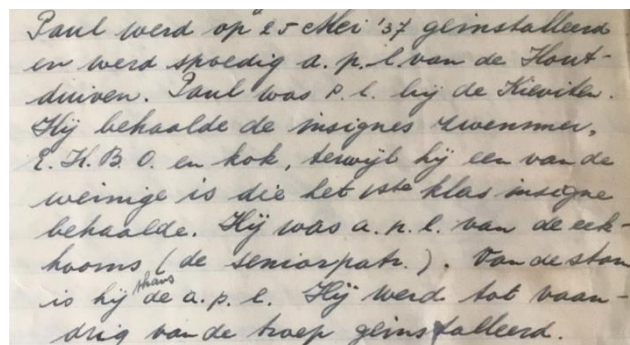 Paul werd op 25 Mei '37 geinstalleerd
en werd spoedig a. p. l. van de Hout-
duiven. Paul was p. l. bij de Kieviten.
Hij behaalde de insignes zwemmer,
E. H. B. O. en kok, terwijl hij een van de
weinige is die het 1ste klas insigne
behaalde. Hij was a. p. l. van de eek-
hoorns (de seniorpatr.). Van de stam
is hij thans de a. p. l. Hij werd tot vaan-
drig van de troep geinstalleerd.